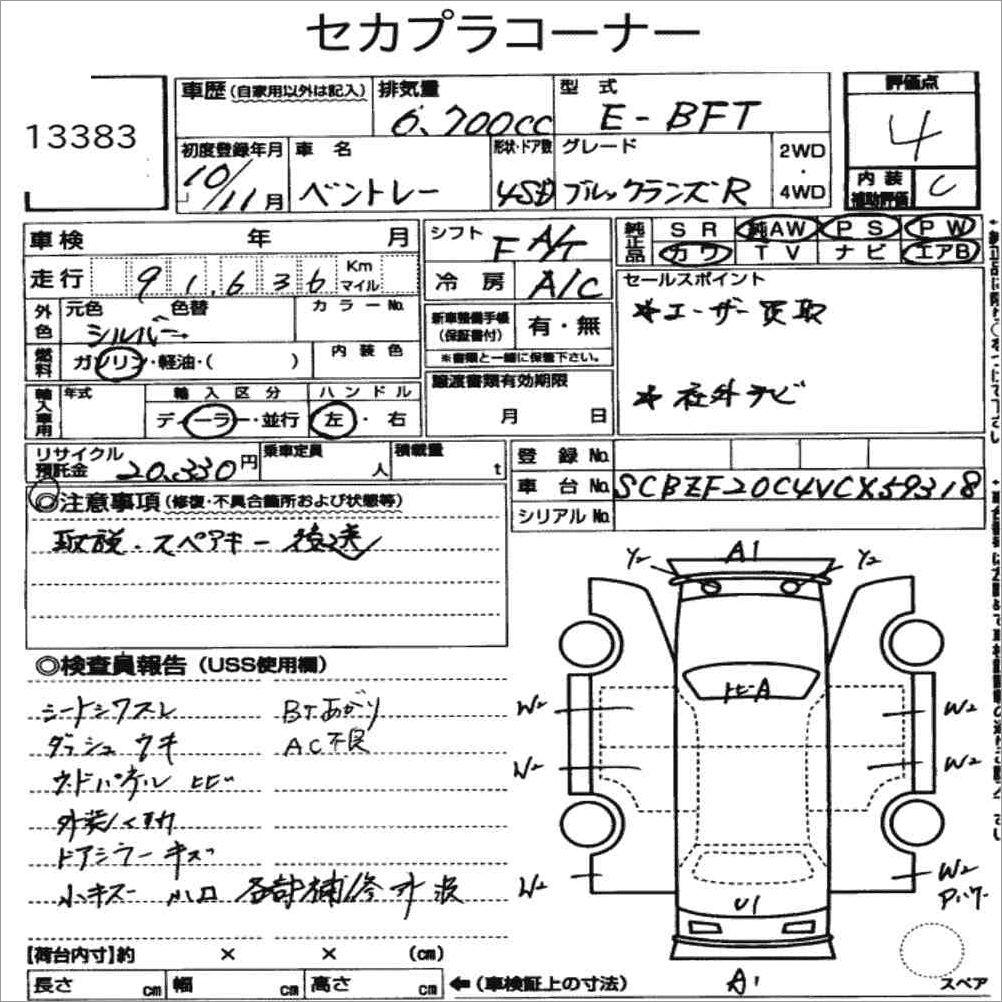 セカプラコーナー
13383
車歴(自家用以外は記入)
排気量
6.700cc
型 式
E-BFT
評価点
4
内装
補助評価
C
初度登録年月
10/11月
車 名
ベントレー
形状・ドア数
4SD
グレード
ブルックランズR
2WD
・
4WD
車検 年 月
シフト
F A/T
純正品
SR 純AW PS PW
カワ TV ナビ エアB
走行 91,636 Km マイル
冷房
A/C
セールスポイント
*ユーザー買取
*社外テレビ
外色
元色 色替
シルバー
カラーNo.
新車整備手帳
(保証書付)
有・無
*書類と一緒に保管下さい。
燃料
ガソリン・軽油・( )
内装色
輸入車用
年式
輸入区分
ディーラー・並行
ハンドル
左・右
譲渡書類有効期限
月 日
リサイクル
預託金 20,330円
乗車定員
人
積載量
t
登録No.
車台No. SCBZF20C4VCX59318
シリアルNo.
◎注意事項(修復・不具合箇所および状態等)
取説・スペアキー後送
◎検査員報告(USS使用欄)
シートシワスレ BTあがり
ダッシュウキ AC不良
ウッドパネルヒビ
ドアミラーキズ
小キズ 凹 各部補修 波
A1
Y2
Y2
W2
W2
W2
W2
W2
W2
U1
A1
【荷台内寸】約 × × (cm)
長さ cm 幅 cm 高さ cm
←(車検証上の寸法)
スペア